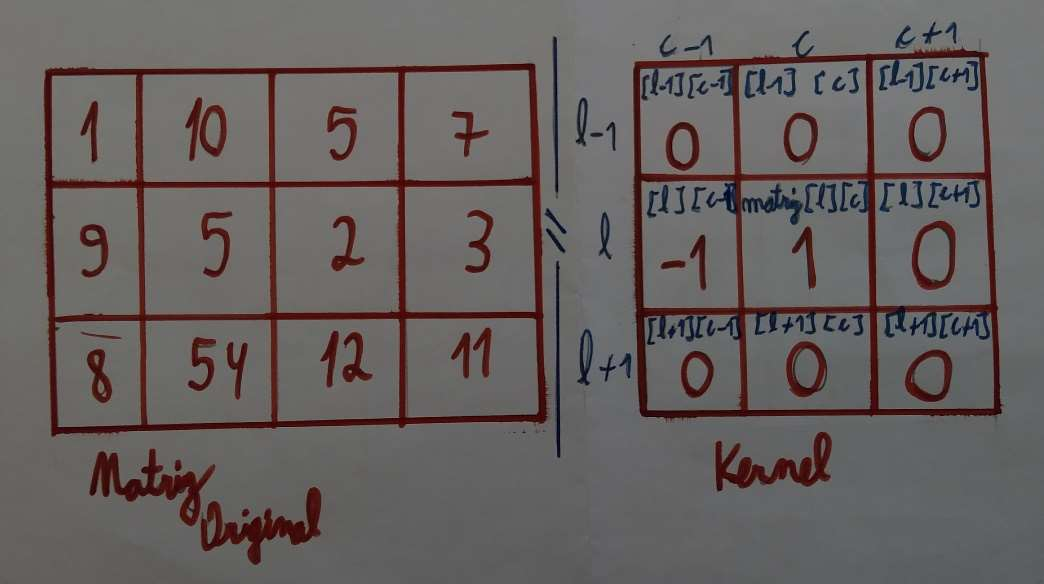 1 10 5 7
9 5 2 3
8 54 12 11
Matriz
Original
c-1 c c+1
l-1 [l-1][c-1] [l-1] [c] [l-1][c+1]
0 0 0
l [l][c-1] matriz[l][c] [l][c+1]
-1 1 0
l+1 [l+1][c-1] [l+1][c] [l+1][c+1]
0 0 0
Kernel